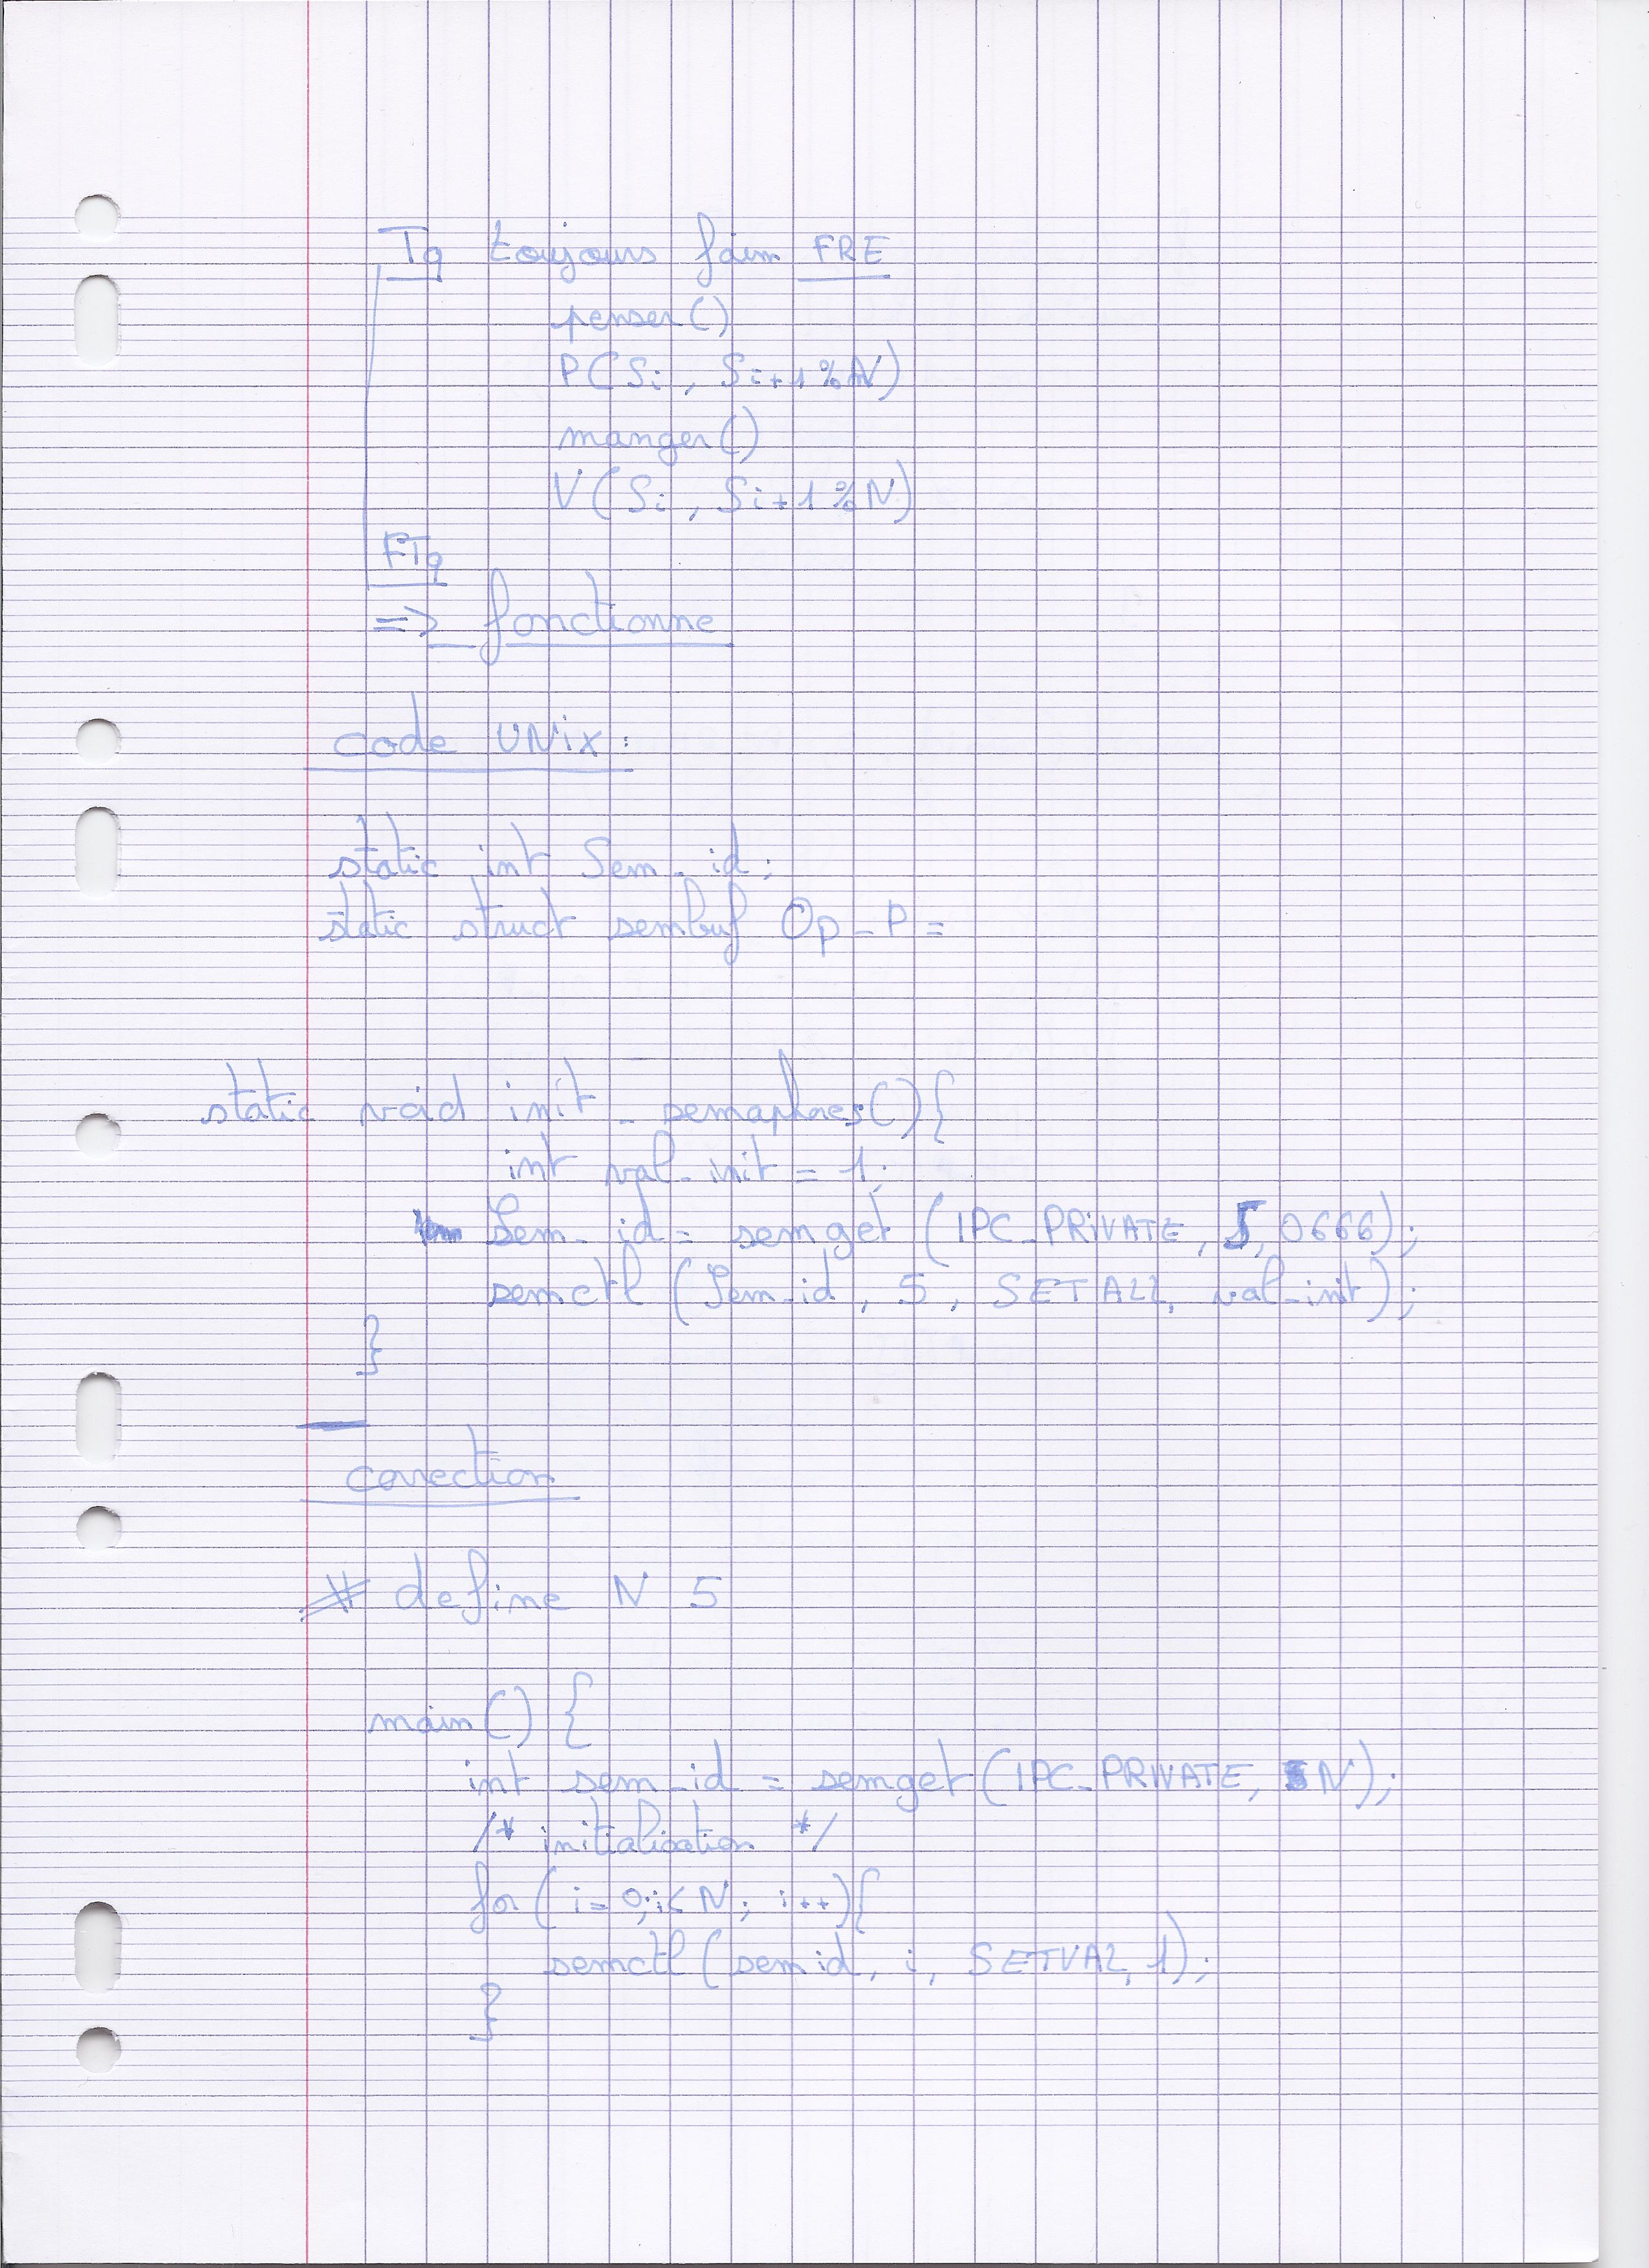 Tq toujours faim FRE
penser()
P(Si, Si+1%N)
manger()
V(Si, Si+1%N)
FTq
=> fonctionne
code UNix:
static int Sem_id;
static struct sembuf Op_P =
static void init_semaphores(){
int val_init = 1;
Sem_id = semget (IPC_PRIVATE, 5, 0666);
semctl (Sem_id, 5, SETALL, val_init);
}
correction
# define N 5
main() {
int sem_id = semget(IPC_PRIVATE, N);
/* initialisation */
for (i=0; i<N; i++){
semctl (sem id, i, SETVAL, 1);
}